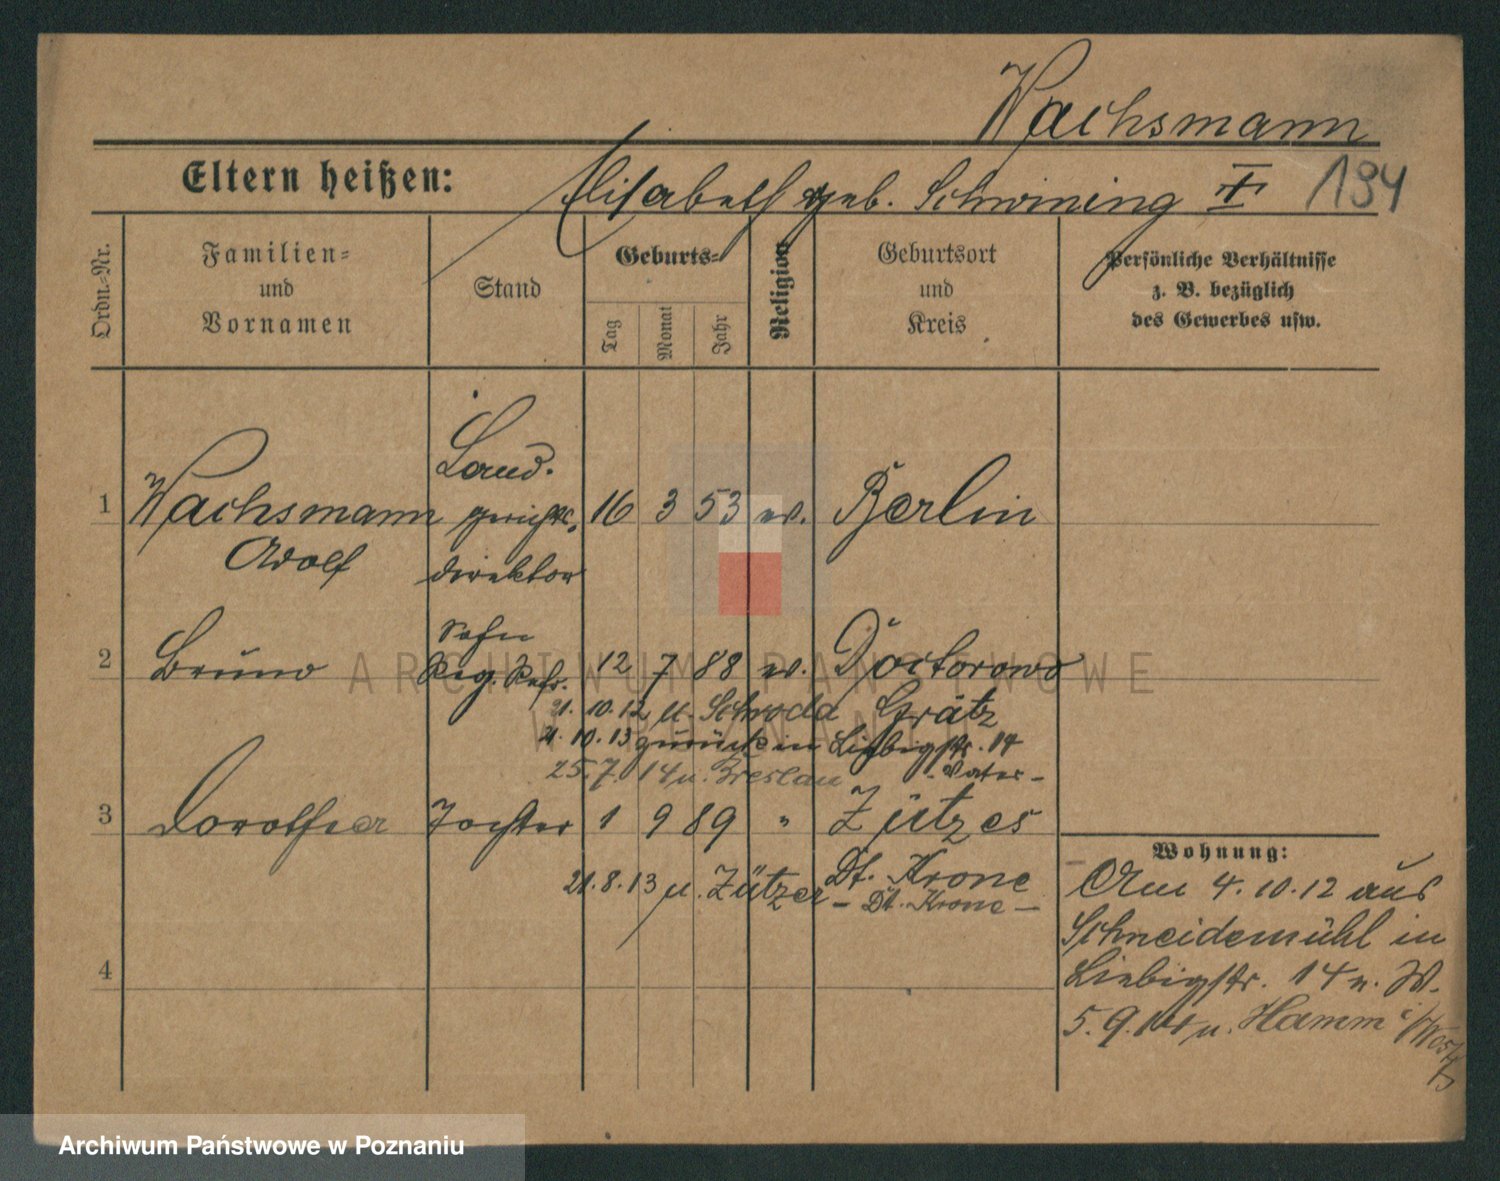 Wachsmann
Eltern heißen: Elisabeth geb. Schwining † 194
Ordn.-Nr.
Familien- und Vornamen
Stand
Geburts-
Tag
Monat
Jahr
Religion
Geburtsort und Kreis
Persönliche Verhältnisse
z. B. bezüglich
des Gewerbes usw.
1 Wachsmann Adolf Landgerichtsdirektor 16 3 53 ev. Berlin
2 Bruno Sohn Reg. Refr. 12 7 88 ev. Doctorowo
21. 10. 12 u. Schroda Grätz
21. 10. 13 zurück in Liebigstr. 14
25. 7. 14 u. Breslau - Vater -
3 Dorothea Tochter 1 9 89 " Zützer
Dt. Krone
21. 8. 13 u. Zützer - Dt. Krone -
4
Wohnung:
Am 4. 10. 12 aus
Schneidemühl in
Liebigstr. 14 n. W.
5. 9. u. Hamm i/
ARCHIWUM PAŃSTWOWE
W POZNANIU
Archiwum Państwowe w Poznaniu